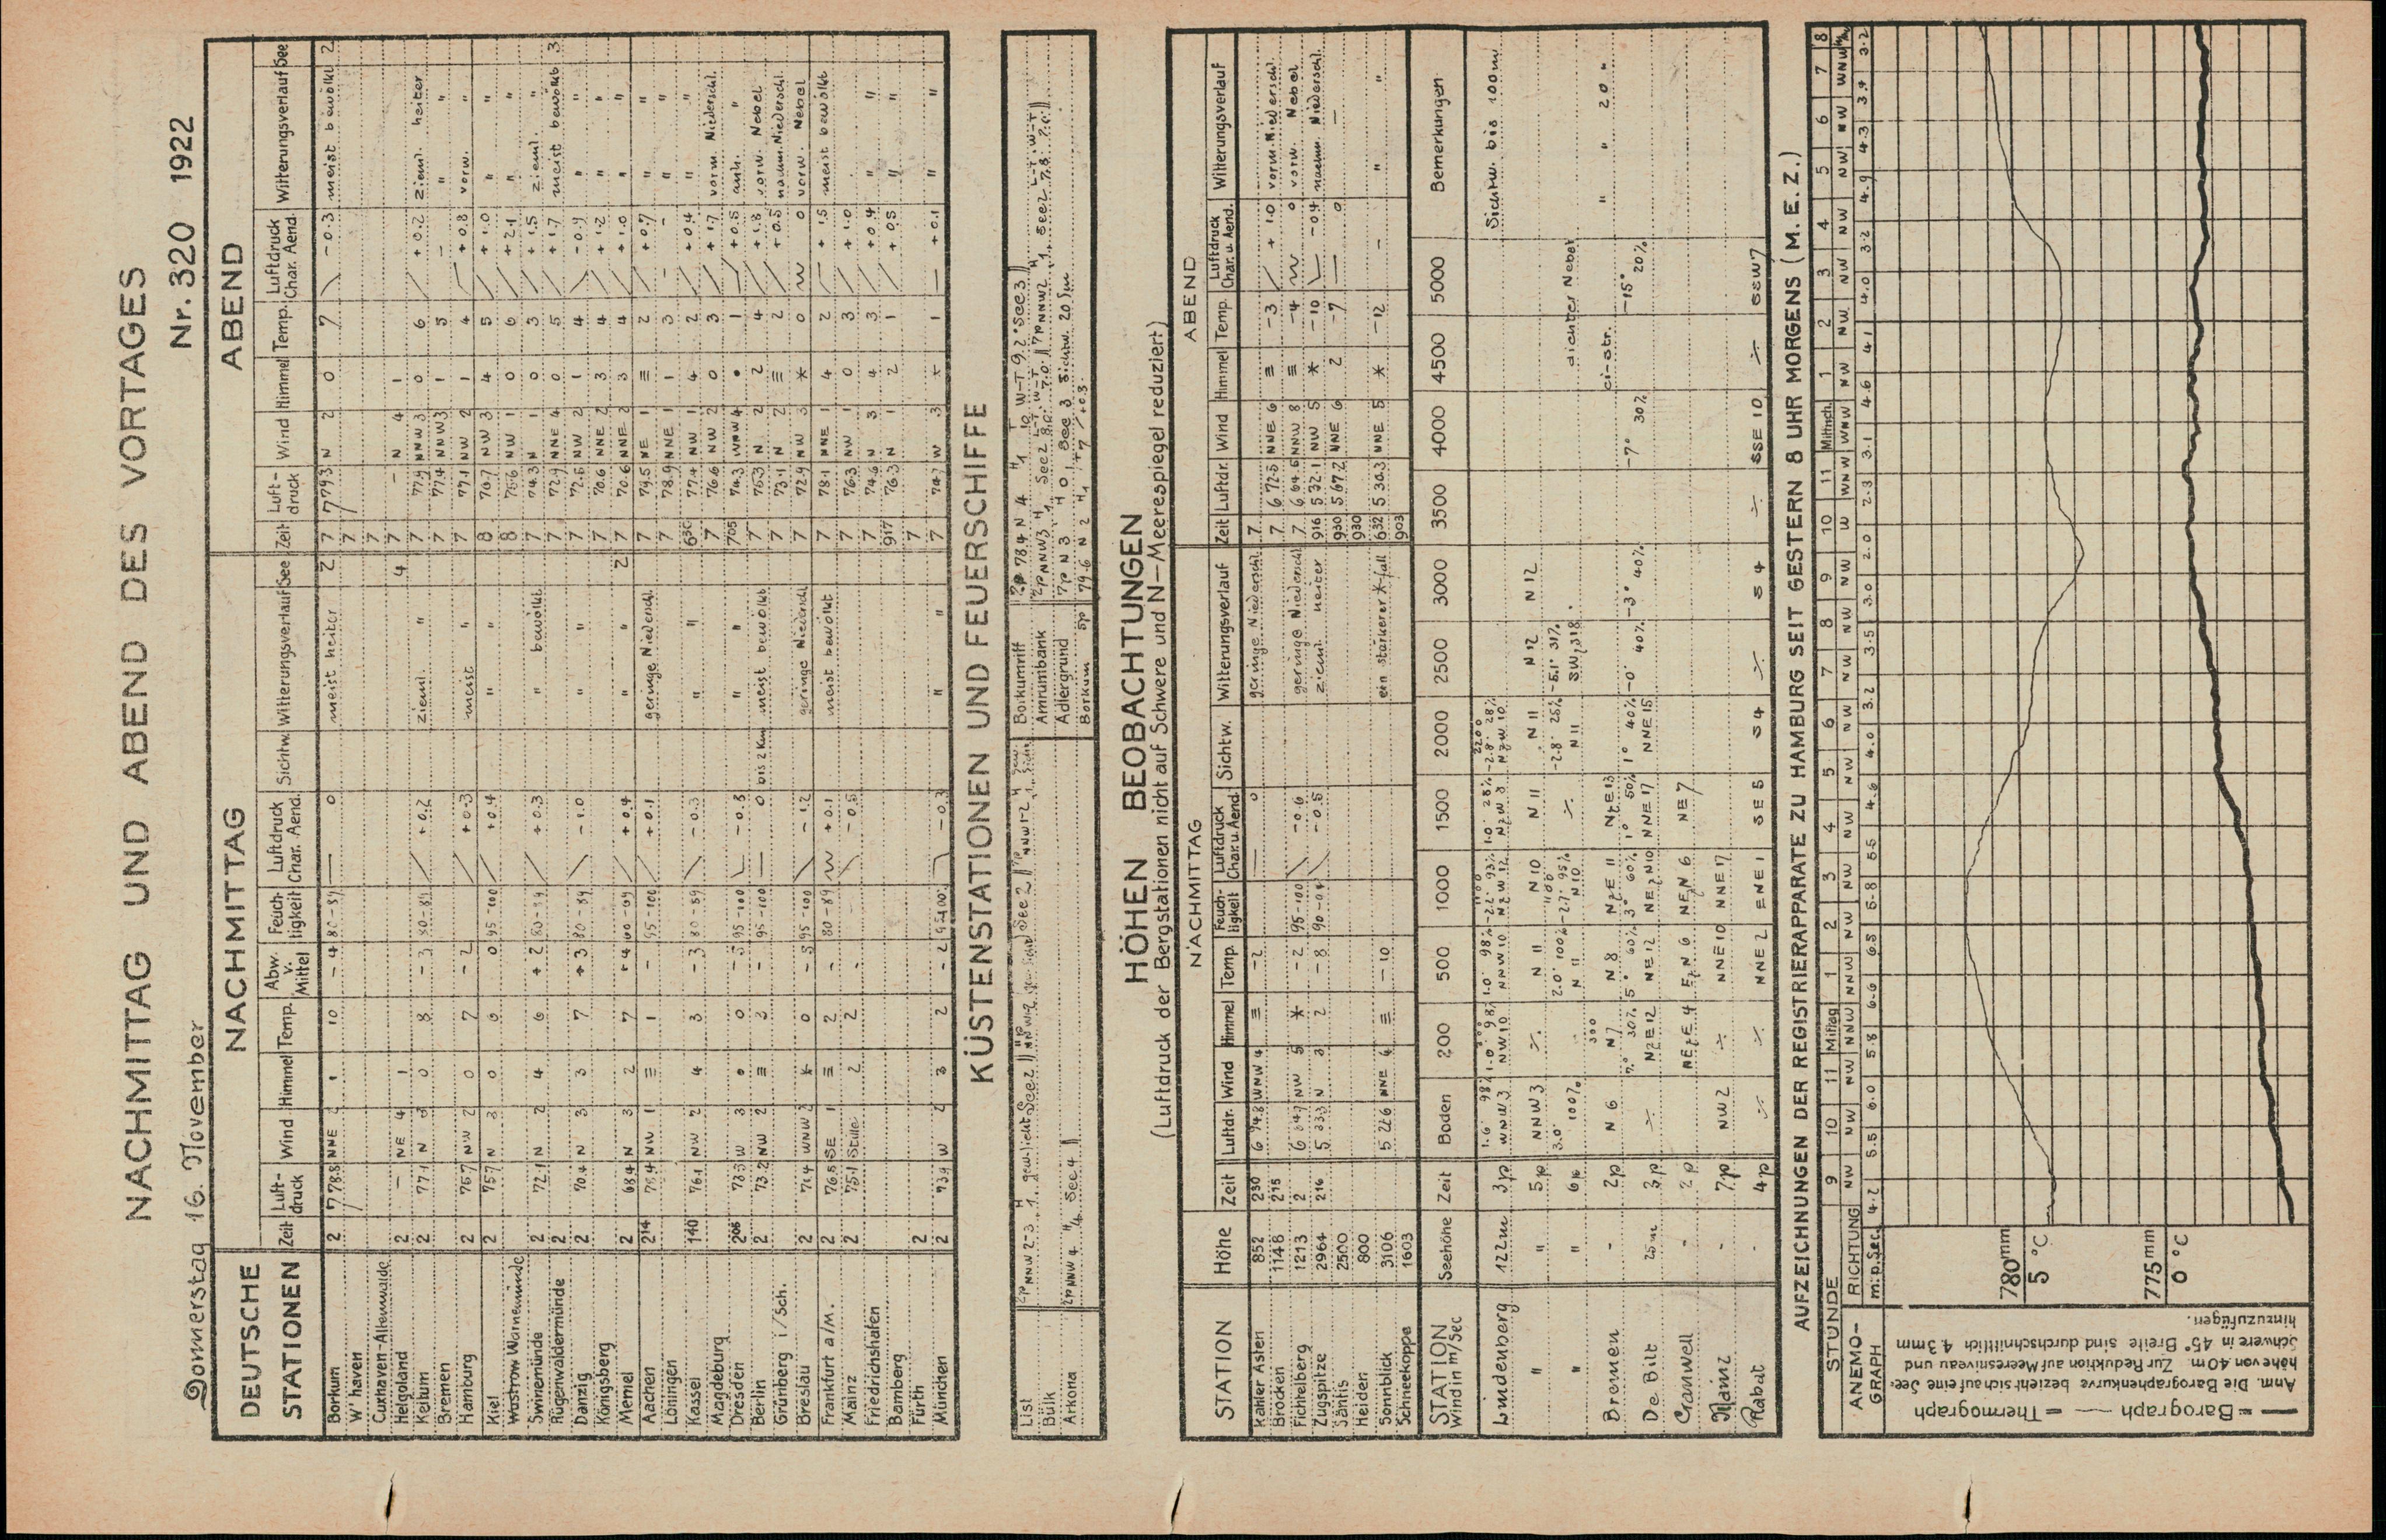 NACHMITTAG UND ABEND DES VORTAGES
Donnerstag 16. November Nr. 320 1922
DEUTSCHE STATIONEN NACHMITTAG ABEND
Zeit Luft-druck Wind Himmel Temp. Abw. v. Mittel Feuch-tigkeit Luftdruck Char. Aend. Sichtw. Witterungsverlauf See Zeit Luft-druck Wind Himmel Temp. Luftdruck Char. Aend. Witterungsverlauf See
Borkum 2 778.8 NNE 2 1 10 -4 80-89 0 meist heiter 2 7 779.3 N 2 0 7 -0.3 meist bewölkt 2
W'haven 7
Cuxhaven-Altenwalde 7
Helgoland 2 — NE 4 1 4 7 — N 4 1
Keitum 2 77.1 N 3 0 8 -3 80-89 +0.2 zieml. " 7 77.9 NNW 3 0 6 +0.2 ziemл. heiter
Bremen 7 77.4 NNW 3 1 5 — " "
Hamburg 2 76.7 NW 2 0 7 -2 +0.3 meist " 7 77.1 NW 2 1 4 +0.8 vorw. "
Kiel 2 75.7 N 3 0 95-100 +0.4 " " 8 76.7 NW 3 4 5 +1.0 " "
Wustrow Warnemünde 8 75.6 NW 1 0 6 +2.1 " "
Swinemünde 2 72.1 N 2 4 6 +2 80-89 +0.3 " bewölkt 7 74.3 N 1 0 3 +1.5 zieml. "
Rügenwaldermünde 2 7 72.9 NNE 4 0 5 +1.7 meist bewölkt 3
Danzig 2 70.4 N 3 3 7 +3 80-89 -1.0 " " 7 72.6 NW 2 1 4 -0.9 " "
Königsberg 7 70.6 NNE 2 3 4 +1.2 " "
Memel 2 68.4 N 3 2 7 +4 60-69 +0.4 " " 2 7 70.6 NNE 2 3 4 +1.0 " "
Aachen 2¹⁴ 78.4 NW 1 ≡ 1 - 95-100 +0.1 geringe Niederschl. 7 79.5 NE 1 ≡ 2 +0.7 " "
Löningen 7 78.9 NNE 1 1 3 - " "
Kassel 1⁴⁰ 76.1 NW 2 4 3 -3 80-89 -0.3 " " 6³⁰ 77.4 NW 1 4 2 +0.4 " "
Magdeburg 7 76.6 NW 2 0 3 +1.7 vorm. Niederschl.
Dresden 2⁰⁵ 73.5 W 3 • 0 -5 95-100 -0.3 " " 7⁰⁵ 74.3 WNW 4 • 1 +0.5 anh. "
Berlin 2 73.2 NW 2 ≡ 3 - 95-100 0 bis 2 Km meist bewölkt 7 75.3 N 2 2 4 +1.8 vorw. Nebel
Grünberg i/Sch. 7 73.1 N 2 ≡ 2 +0.5 nachm. Niederschl.
Breslau 2 71.4 WNW 2 * 0 -5 95-100 -1.2 geringe Niederschl. 7 72.9 NW 3 * 0 0 vorw. Nebel
Frankfurt a/M. 2 76.8 SE 1 ≡ 2 - 80-89 +0.1 meist bewölkt 7 78.1 NNE 1 4 2 +1.5 meist bewölkt
Mainz 2 75.1 Stille 2 2 - -0.5 7 76.3 NW 1 0 3 +1.0
Friedrichshafen 7 74.6 N 3 4 3 +0.4 " "
Bamberg 9¹⁷ 76.3 N 1 2 1 +0.5 " "
Fürth 2 7
München 2 73.9 W 2 3 2 -2 95-100 -0.3 " " 7 74.7 W 3 * 1 +0.1 " "
KÜSTENSTATIONEN UND FEUERSCHIFFE
List 2p NNW 2-3 1 gew. licht See 2
Bülk
Arkona 2p NNW 4 See 4
Borkumriff 2p 78.4 N 4 W-T 9.2° See 3
Amrumbank 2p NNW 3 See 2 8.0. W-T 7.0. 7p NNW 2 See 2 7.8. L-T W-T 7.0.
Adlergrund 7p N 3 See 3 Sichtw. 20 Sm
Borkum 5p 79.6 N 2 7 +0.3
HÖHEN BEOBACHTUNGEN
(Luftdruck der Bergstationen nicht auf Schwere und N—Meerespiegel reduziert)
STATION Höhe NACHMITTAG ABEND
Zeit Luftdr. Wind Himmel Temp. Feuch-tigkeit Luftdruck Char. u. Aend. Sichtw. Witterungsverlauf Zeit Luftdr. Wind Himmel Temp. Luftdruck Char. u. Aend. Witterungsverlauf
Kahler Asten 852 2³⁰ 674.8 WNW 4 ≡ -2 0 geringe Niederschl. 7 672.5 NNE 6 ≡ -3 +1.0 vorm. Niederschl.
Brocken 1148 2¹⁵ 7 664.6 NNW 8 ≡ -4 0 vorw. Nebel
Fichtelberg 1213 2 664.9 NW 5 * -2 95-100 -0.6 geringe Niederschl. 7
Zugspitze 2964 2¹⁶ 533.3 N 3 2 -8 90-94 -0.5 ziemл. heiter 9¹⁶ 532.1 NW 5 * -10 -0.4 nachm. Niederschl.
Säntis 2500 9³⁰ 567.2 NNE 6 2 -7 0 —
Heiden 800 9³⁰
Sonnblick 3106 522.6 NNE 4 ≡ -10 ein starkerer *-fall 6³² 530.3 NNE 5 * -12 - " "
Schneekoppe 1603 9⁰³
STATION Wind in m/Sec Seehöhe Zeit Boden 200 500 1000 1500 2000 2500 3000 3500 4000 4500 5000 Bemerkungen
Lindenberg 122m 3p 1.6° 98% 1.0° 98% 1.0° 98% -2.2° 93% 1.0° 28% -2.8° 28%
WNW 3 NW 10 NNW 10 NzW 12 NzW 9 NzW 10 Sichtw. bis 100m
" " 5p NNW 3 ÷ N 11 N 10 N 11 N 11 N 12 N 12
" " 6p 3.0° 100% 2.0° 100% -2.7° 95% ÷ -2.8° 25% -5.1° 31% dichter Nebel
N 11 N 10 N 11
Bremen - 2p N 6 N 7 N 8 NzE 11 NzE 13 ci-str. " " 20 "
De Bilt 25m 3p ÷ 7° 30% 5° 60% 3° 60% 1° 50% 1° 40% -0° 40% -3° 40% -7° 30% -15° 20%
NzE 12 NE 12 NNE 17 NNE 15
Cranwell - 2p NEzE 4 EzN 6 NEzN 6 NE 7
Mainz - 7p NW 2 ÷ NNE 10 NNE 17
Rabat - 4p ÷ ÷ NNE 2 ENE 1 SE 5 S 4 ÷ S 4 ÷ SSE 10 ÷ SSW 7
AUFZEICHNUNGEN DER REGISTRIERAPPARATE ZU HAMBURG SEIT GESTERN 8 UHR MORGENS (M. E. Z.)
STUNDE 9 10 11 Mittag 1 2 3 4 5 6 7 8 9 10 11 Mittnch. 1 2 3 4 5 6 7 8
ANEMO-GRAPH RICHTUNG NW NW NW NNW NNW NW NW NW NW NW NW NW NW W WNW WNW NW NW NW NW NW NW WNW
m. p. Sec. 4.2 5.5 6.0 5.8 6.6 6.5 5.8 5.5 4.6 4.0 3.2 3.5 3.0 2.0 2.3 3.1 4.6 4.1 4.0 3.2 4.9 4.3 3.4 3.2
780 mm
5 °C
775 mm
0 °C
— = Barograph — = Thermograph
Anm. Die Barographenkurve bezieht sich auf eine See-
höhe von 40 m. Zur Reduktion auf Meeresniveau und
Schwere in 45° Breite sind durchschnittlich 4.3 mm
hinzuzufügen.